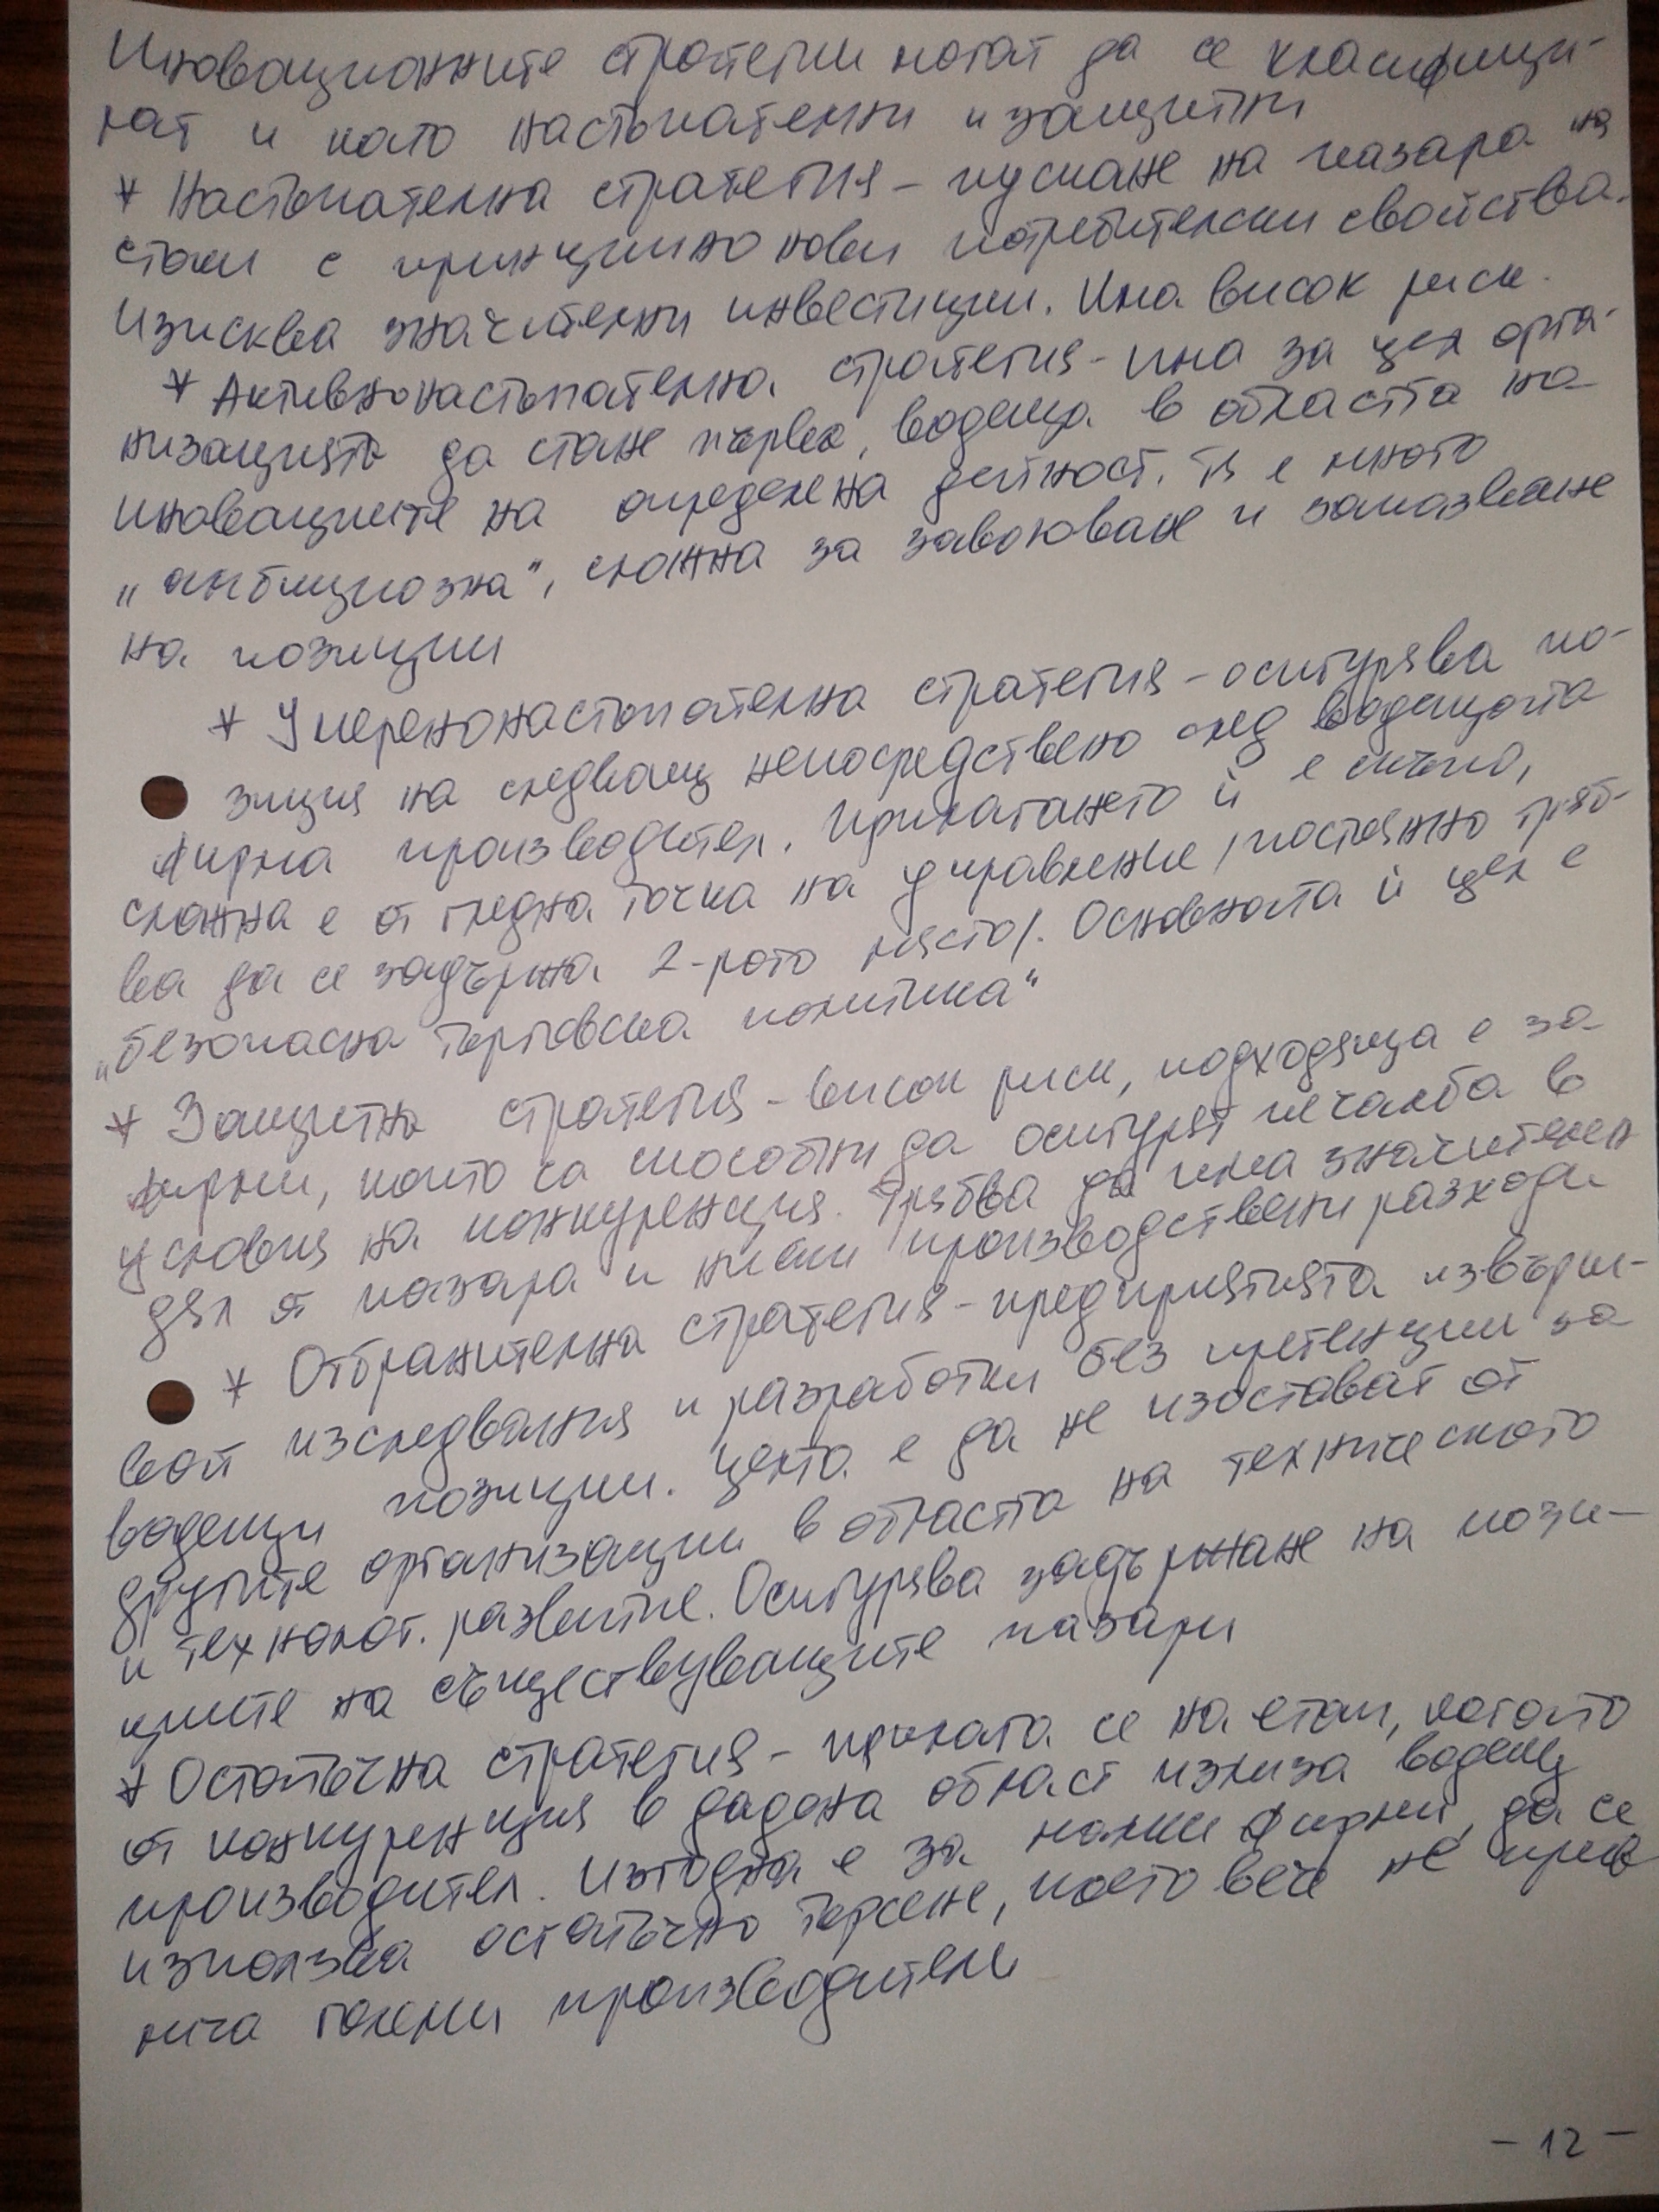 Иновационните стратегии могат да се класифици-
рат и като настъпателни и защитни
* Настъпателна стратегия – пускане на пазара на
стоки с принципно нови потребителски свойства.
Изисква значителни инвестиции. Има висок риск.
* Активнонастъпателна стратегия – има за цел орга-
низацията да стане първа, водеща в областта на
иновациите на определена дейност. Тя е много
„амбициозна“, сложна за завоюване и запазване
на позиции
* Умеренонастъпателна стратегия – осигурява по-
зиция на следващ непосредствено след водещата
фирма производител. Прилагането ѝ е скъпо,
сложна е от гледна точка на управление /постоянно тряб-
ва да се задържа 2-рото място/. Основната ѝ цел е
„безопасна търговска политика“
* Защитна стратегия – висок риск, подходяща е за
фирми, които са способни да осигурят печалба в
условия на конкуренция. Трябва да има значителен
дял от пазара и ниски производствени разходи
* Отбранителна стратегия – предприятията извърш-
ват изследвания и разработки без претенции за
водещи позиции. Целта е да не изостават от
другите организации в областта на техническото
и технолог. развитие. Осигурява задържане на пози-
циите на съществуващите пазари
* Остатъчна стратегия – прилага се на етап, когато
от конкуренция в дадена област излиза водещ
производител. Изгодна е за малки фирми, да се
използва остатъчно търсене, което вече не прив
лича големи производители
– 12 –